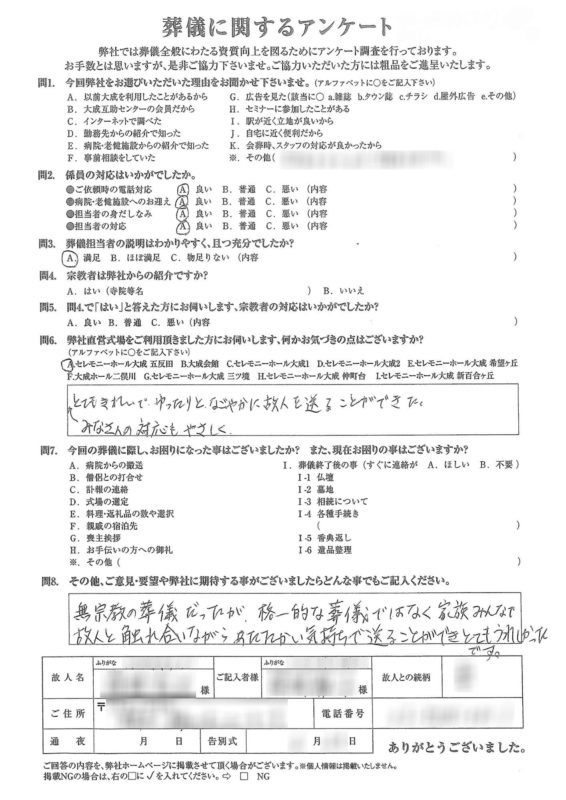 葬儀に関するアンケート
弊社では葬儀全般にわたる資質向上を図るためにアンケート調査を行っております。
お手数とは思いますが、是非ご協力下さいませ。ご協力いただいた方には粗品をご進呈いたします。
問1. 今回弊社をお選びいただいた理由をお聞かせ下さいませ。(アルファベットに○をご記入下さい)
A. 以前大成を利用したことがあるから G. 広告を見た(該当に○ a.雑誌 b.タウン誌 c.チラシ d.屋外広告 e.その他)
B. 大成互助センターの会員だから H. セミナーに参加したことがある
C. インターネットで調べた I. 駅が近く立地が良いから
D. 勤務先からの紹介で知った J. 自宅に近く便利だから
E. 病院・老健施設からの紹介で知った K. 会葬時、スタッフの対応が良かったから
F. 事前相談をしていた ※. その他( )
問2. 係員の対応はいかがでしたか。
●ご依頼時の電話対応 A. 良い B. 普通 C. 悪い (内容 )
●病院・老健施設へのお迎え A. 良い B. 普通 C. 悪い (内容 )
●担当者の身だしなみ A. 良い B. 普通 C. 悪い (内容 )
●担当者の対応 A. 良い B. 普通 C. 悪い (内容 )
問3. 葬儀担当者の説明はわかりやすく、且つ充分でしたか?
A. 満足 B. ほぼ満足 C. 物足りない (内容 )
問4. 宗教者は弊社からの紹介ですか?
A. はい (寺院等名 ) B. いいえ
問5. 問4.で「はい」と答えた方にお伺いします、宗教者の対応はいかがでしたか?
A. 良い B. 普通 C. 悪い (内容 )
問6. 弊社直営式場をご利用頂きました方にお伺いします、何かお気づきの点はございますか?
(アルファベットに○をご記入下さい)
A.セレモニーホール大成 五反田 B.大成会館 C.セレモニーホール大成1 D.セレモニーホール大成2 E.セレモニーホール大成 希望ヶ丘
F.大成ホール二俣川 G.セレモニーホール大成 三ツ境 H.セレモニーホール大成 仲町台 I.セレモニーホール大成 新百合ヶ丘
とてもきれいで、ゆったりと、なごやかに故人を送ることができた。
みなさんの対応もやさしく
問7. 今回の葬儀に際し、お困りになった事はございましたか? また、現在お困りの事はございますか?
A. 病院からの搬送 I. 葬儀終了後の事 (すぐに連絡が A. ほしい B. 不要)
B. 僧侶との打合せ I-1 仏壇
C. 訃報の連絡 I-2 墓地
D. 式場の選定 I-3 相続について
E. 料理・返礼品の数や選択 I-4 各種手続き
F. 親戚の宿泊先 ( )
G. 喪主挨拶 I-5 香典返し
H. お手伝いの方への御礼 I-6 遺品整理
※. その他 ( )
問8. その他、ご意見・要望や弊社に期待する事がございましたらどんな事でもご記入ください。
無宗教の葬儀だったが、格一的な葬儀ではなく家族みんなで
故人と触れ合いながらあたたかい気持ちで送ることができとてもうれしかった
です。
故人名 ふりがな 様 ご記入者様 ふりがな 様 故人との続柄
ご住所 〒 電話番号
通夜 月 日 告別式 月 日 ありがとうございました。
ご回答の内容を、弊社ホームページに掲載させて頂く場合がございます。※個人情報は掲載いたしません。
掲載NGの場合は、右の□に✓を入れてください。⇨ □ NG